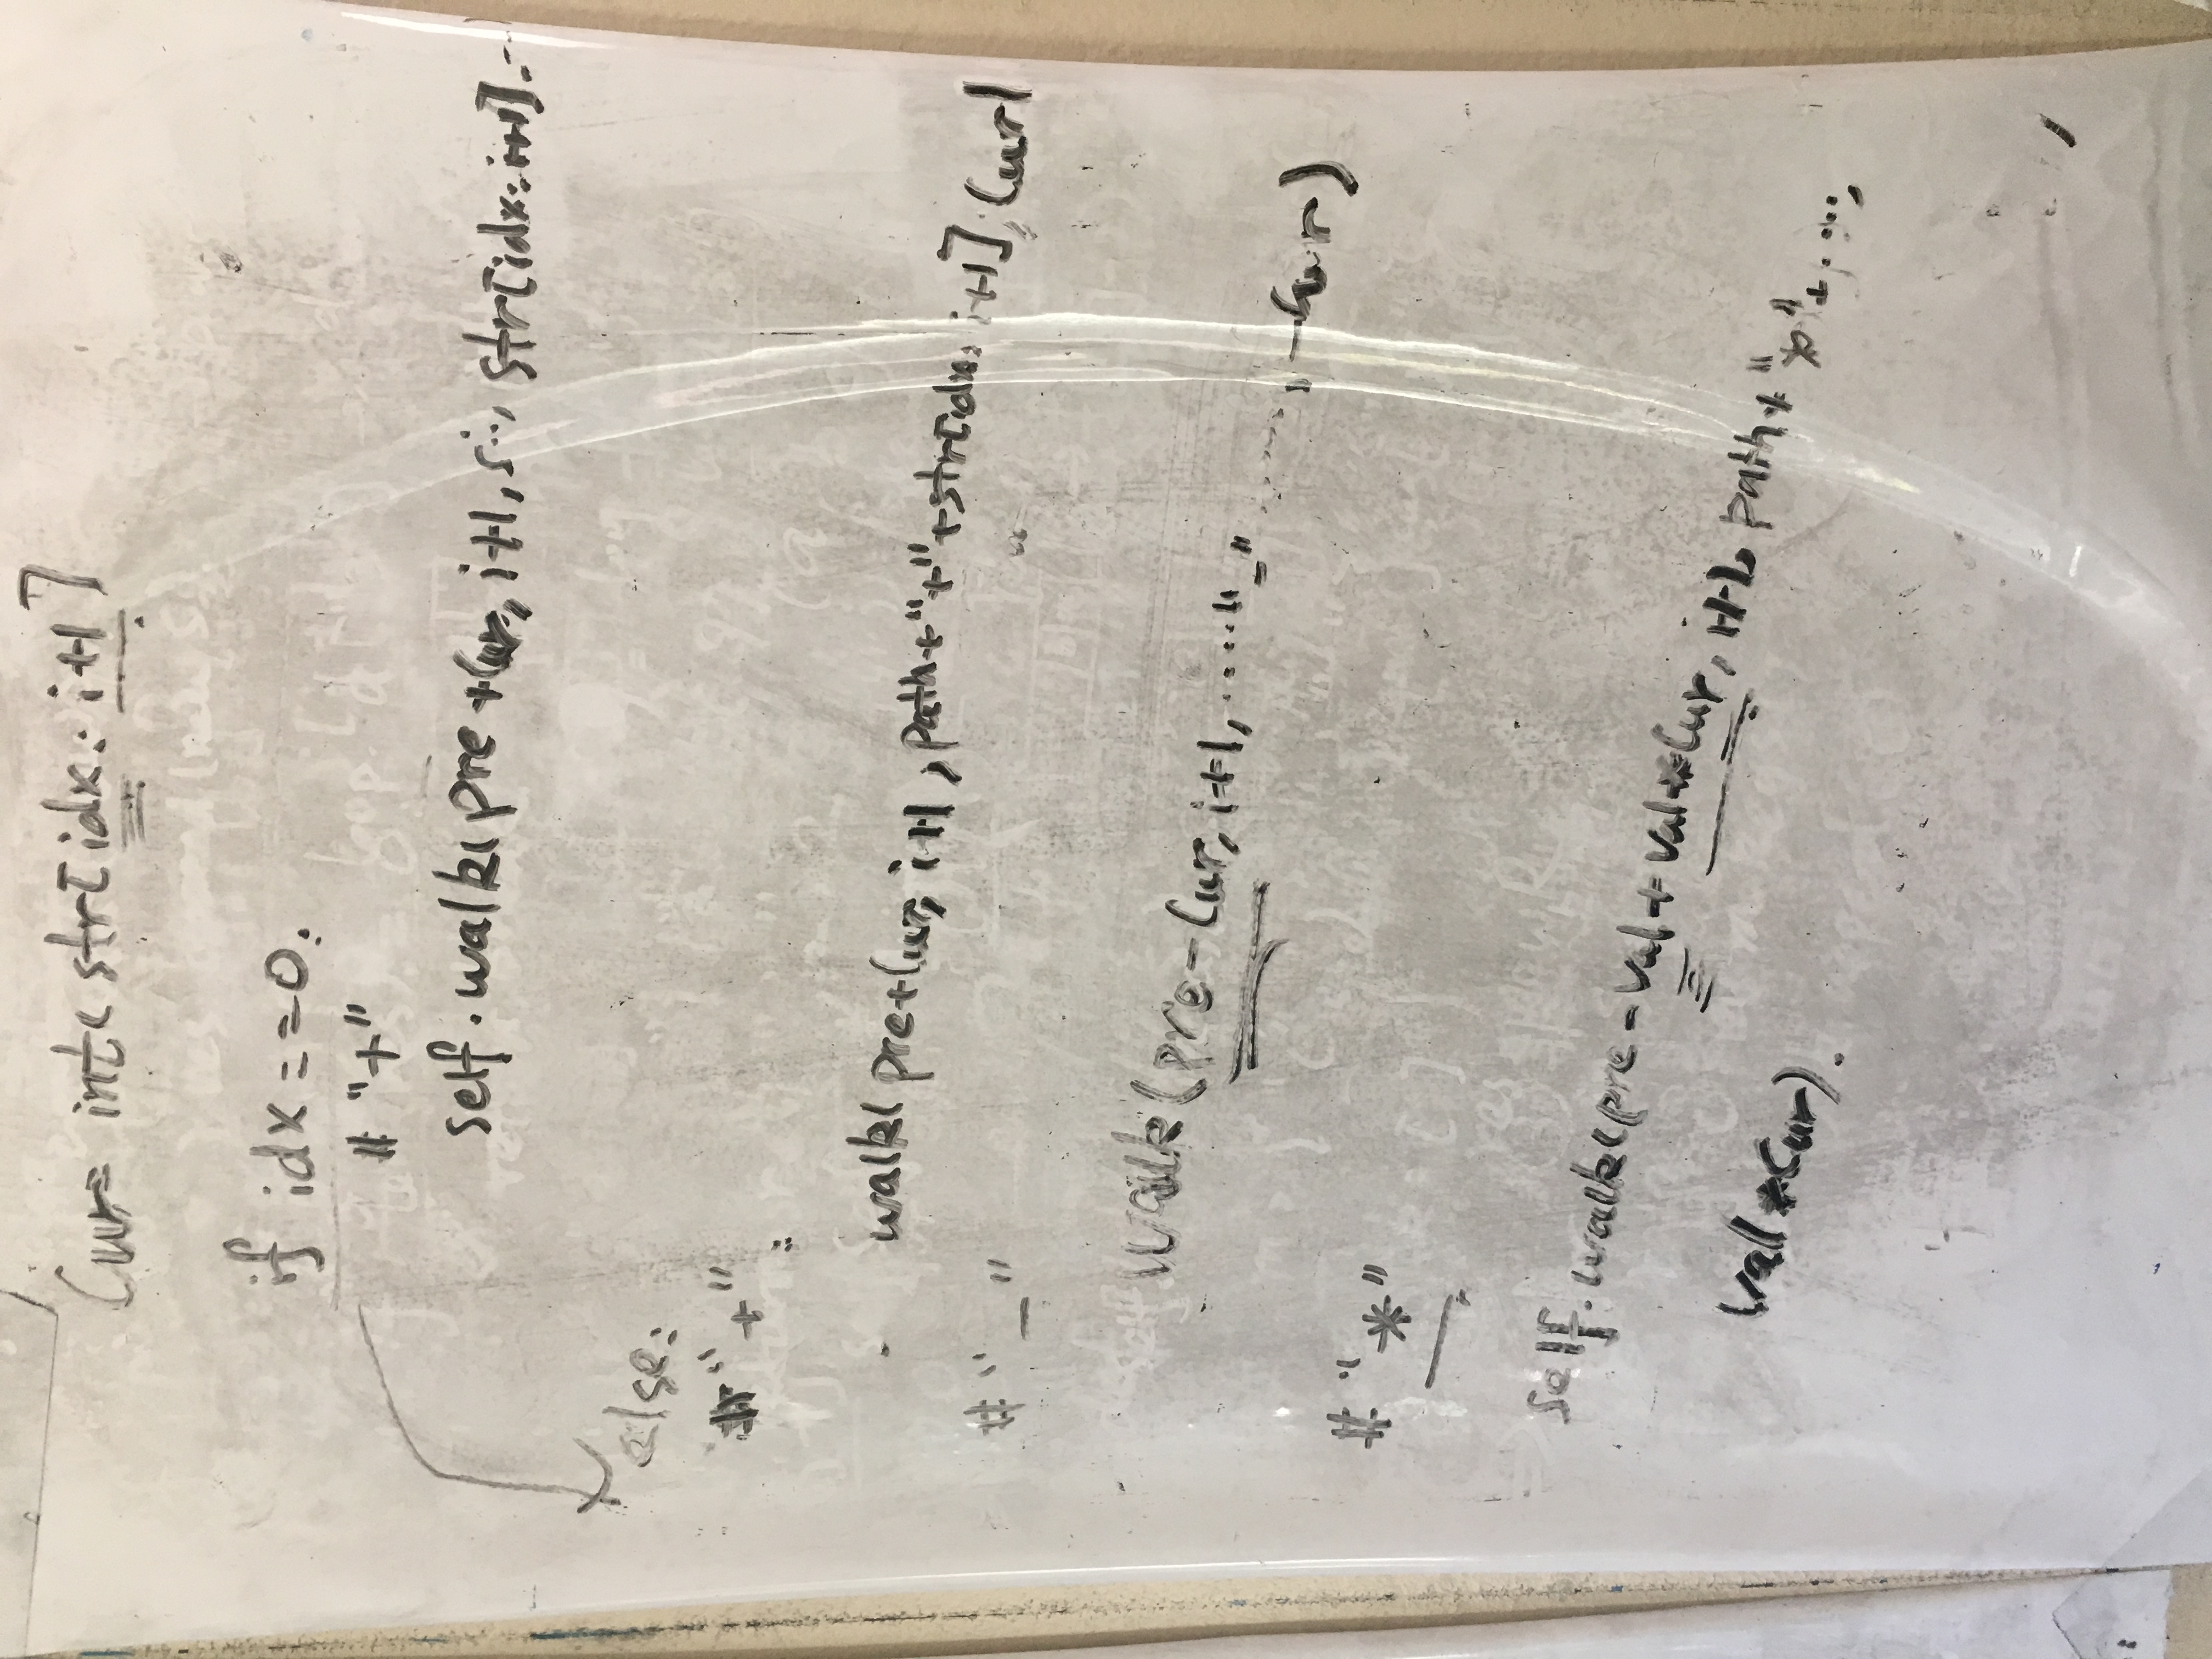 Cur= int( str[idx: i+1]
if idx==0:
# "+"
self.walk(pre+Cur, i+1, str[idx:i+1]...
else:
# "+"
walk(pre+Cur, i+1, path+"+"+str[idx: i+1], Cur)
# "-"
Walk(pre-Cur, i+1, ....."-"......, -Cur)
# "*"
self.walk(pre-Val+Val*Cur, i+1, path+"*"+....,
Val*Cur).